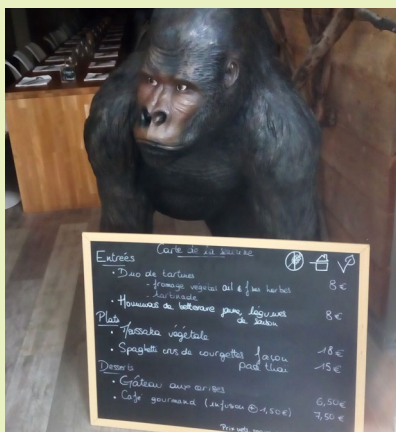 Carte de la semaine
Entrées
• Duo de tartines 8 €
- fromage végétal ail & fines herbes
- tartinade
• Houmous de betterave pures légumes de saison 8 €
Plats
• Moussaka végétale 18 €
• Spaghetti crus de courgettes façon pad thaï 15 €
Desserts
• Gâteau aux cerises 6,50 €
• Café gourmand (infusion + 1,50 €) 7,50 €
Prix nets